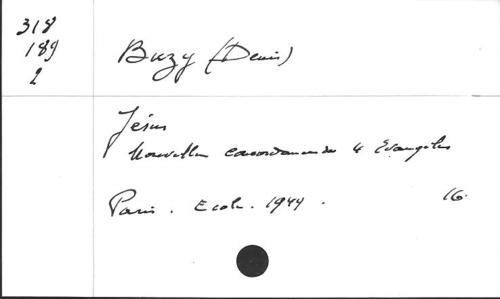 318
189
2
Buzy (Denis)
Jésus
Nouvelle concordance des 4 Evangiles
Paris. Ecole. 1944. 16